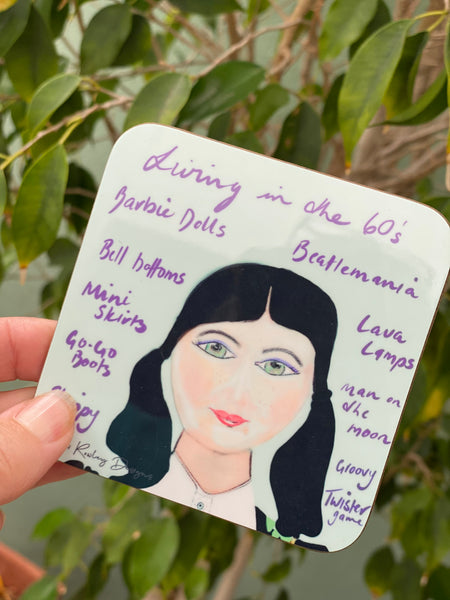 Living in the 60's
Barbie Dolls
Bell bottoms
Mini
Skirts
Go-Go
Boots
Beatlemania
Lava
Lamps
Man on
the
moon
Groovy
Twister
game
Designs